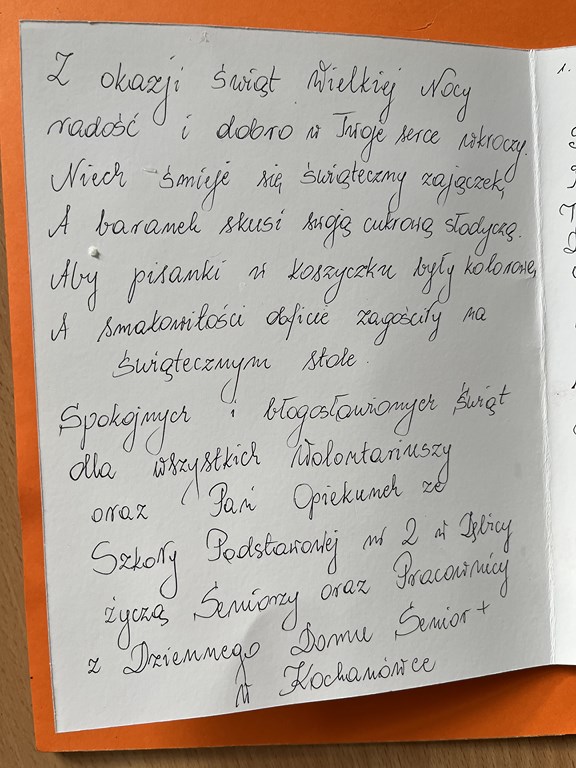 Z okazji Świąt Wielkiej Nocy
radość i dobro w Twoje serce wkroczy.
Niech śmieje się świąteczny zajączek,
A baranek skusi swoją cukrową słodyczą.
Aby pisanki w koszyczku były kolorowe,
A smakowitości obficie zagościły na
świątecznym stole.
Spokojnych i błogosławionych Świąt
dla wszystkich Wolontariuszy
oraz Pań Opiekunek ze
Szkoły Podstawowej nr 2 w Dębicy
życzą Seniorzy oraz Pracownicy
z Dziennego Domu Senior+
w Kochanówce
1.